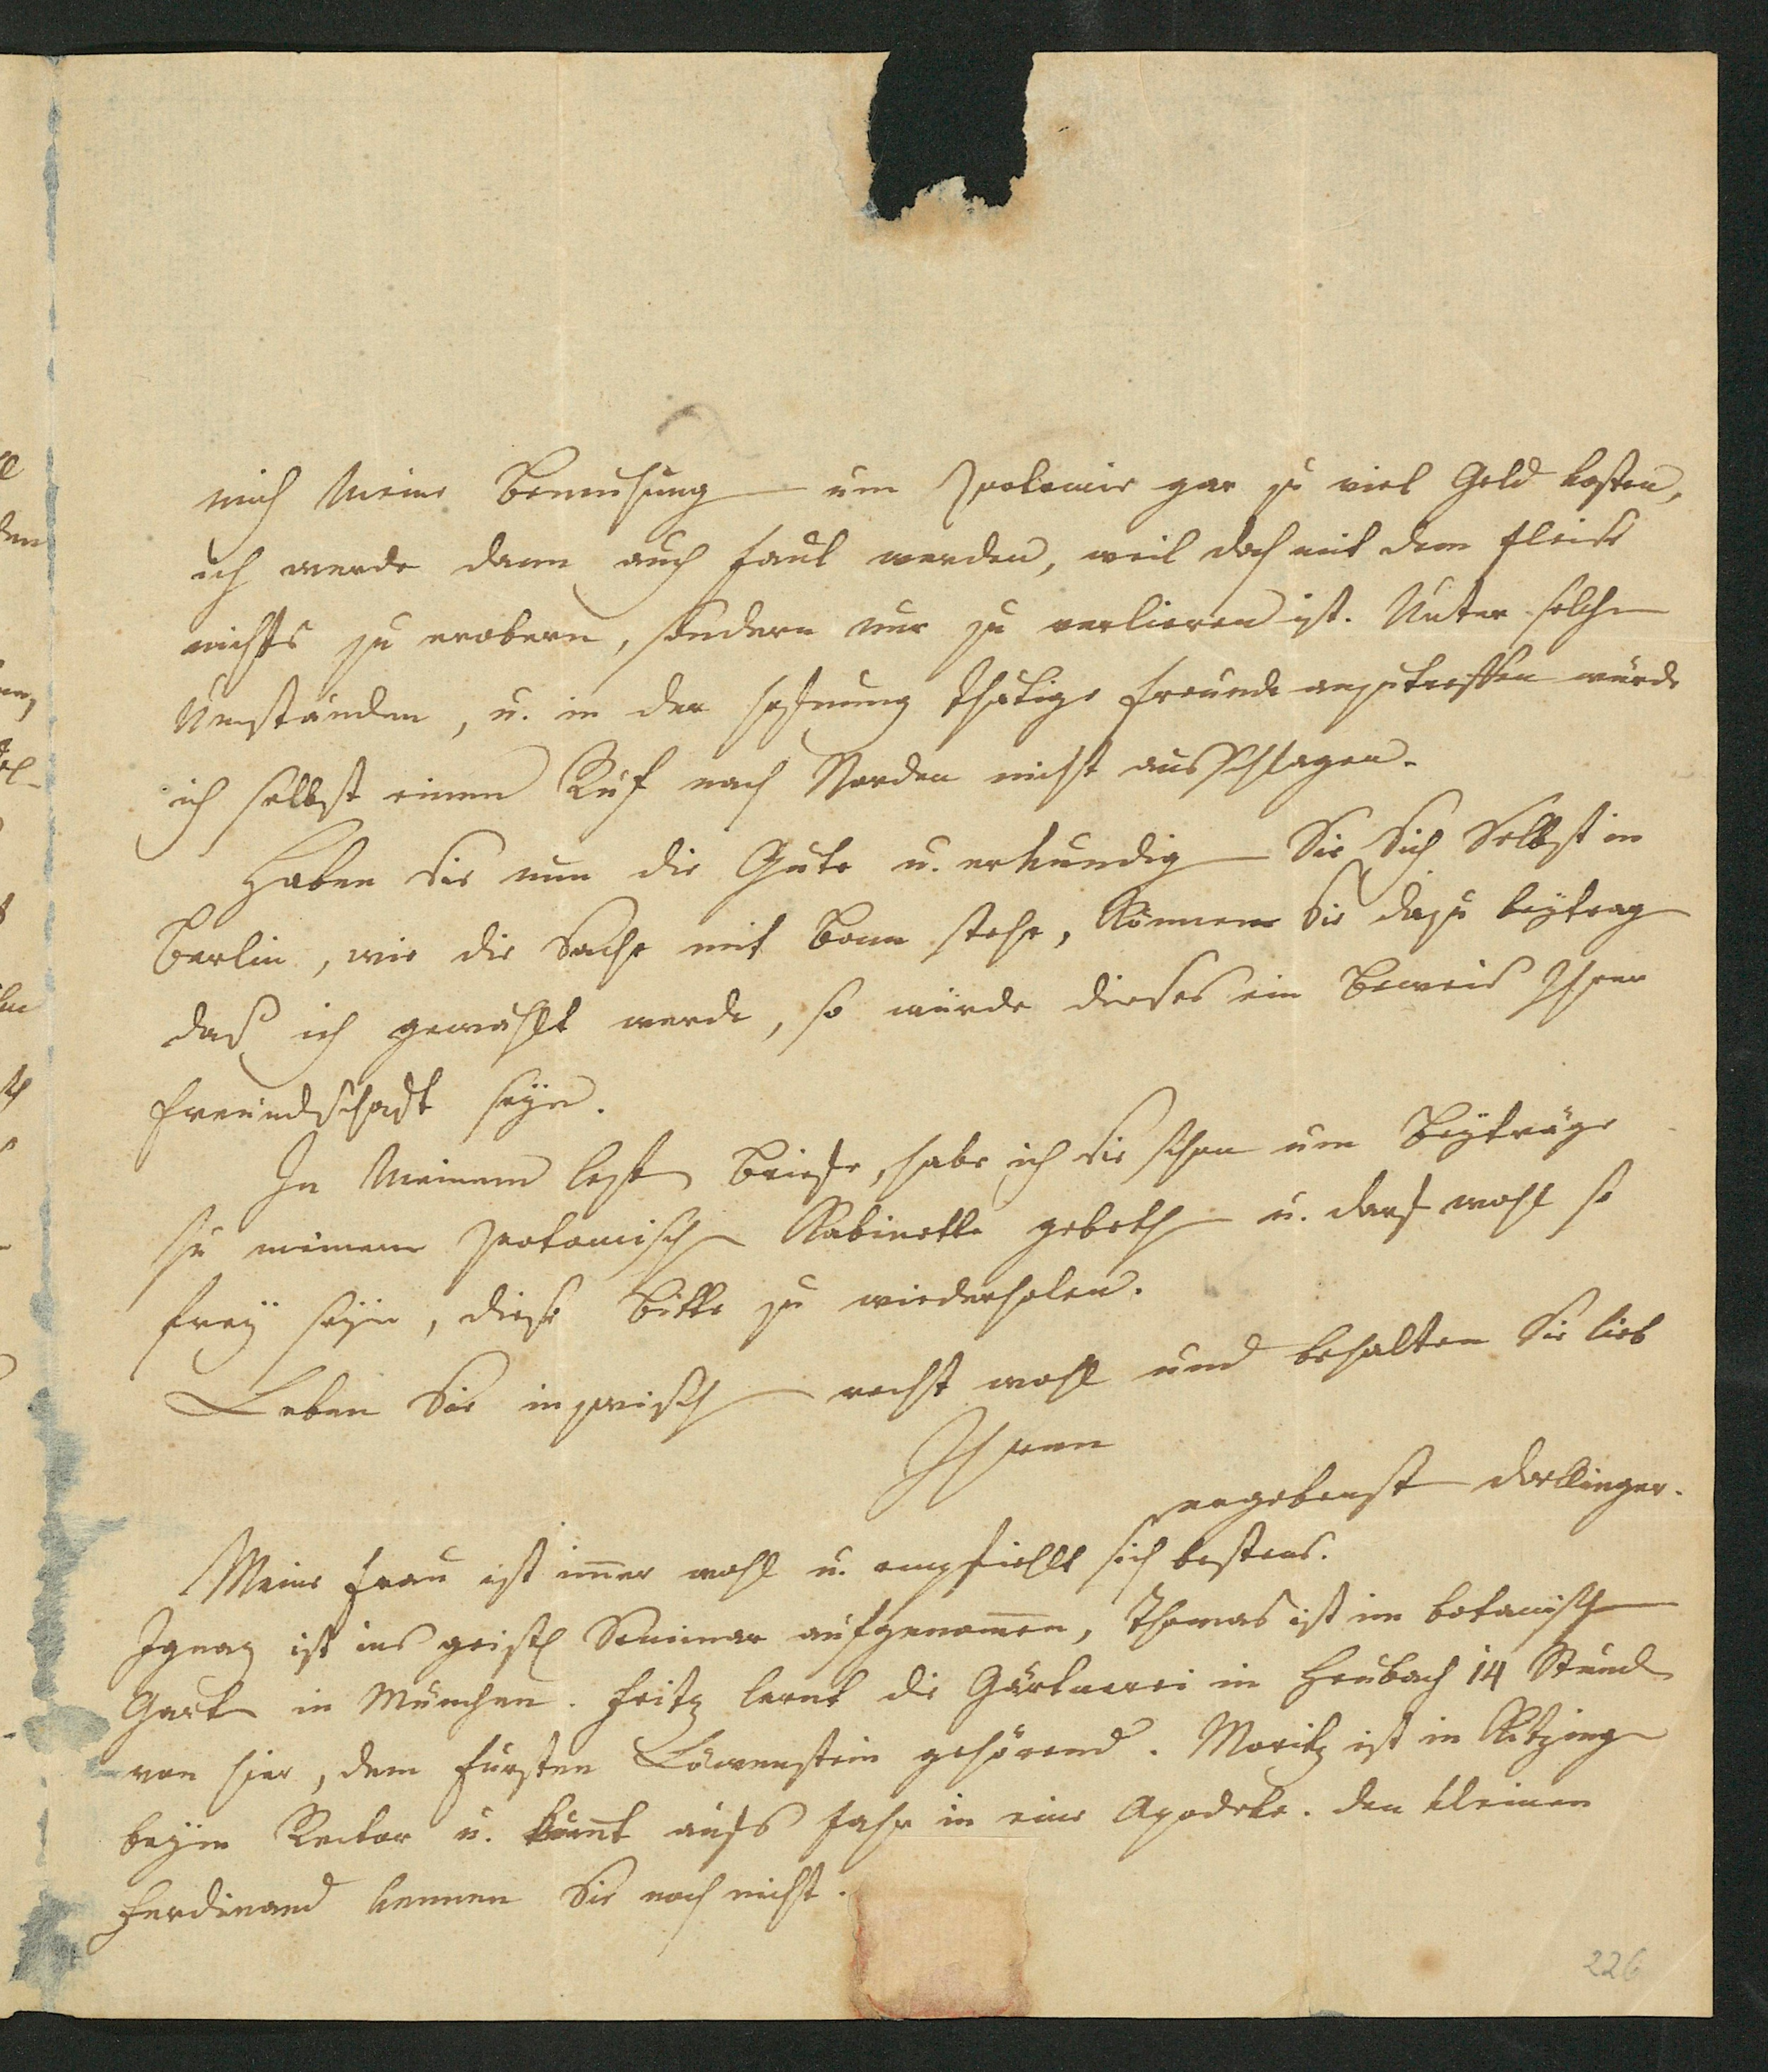 mich Meine Bemuhung um Zootomie gar zu viel Geld kosten,
ich werde dann auch faul werden, weil doch mit dem Fleiße
nichts zu erobern, sondern nur zu verlieren ist. Unter solchen
Umständen, u. in der Hofnung thätige Freunde anzutreffen würde
ich selbst einen Ruf nach Norden nicht ausschlagen.
Haben Sie nun die Güte u. erkundigen Sie Sich Selbst in
Berlin, wie die Sache mit Bonn stehe, Können Sie dazu beytragen
daß ich gewählt werde, so würde dieses ein Beweis Ihrer
Freundschaft seyn.
In Meinem lezten Briefe, habe ich Sie schon um Beyträge
zu meinem zootomischen Kabinette gebethen u. darf wohl so
frey seyn, diese Bitte zu wiederholen.
Leben Sie inzwischen recht wohl und behalten Sie lieb
Ihren
ergebenst Doellinger.
Meine Frau ist im̅er wohl u. empfiehlt sich bestens.
Ignaz ist ins geistl Seminar aufgenom̅en, Thomas ist im botanischen
Garten in München. Fritz lernt die Gärtnerei in Heubach 14 Stunden
von hier, dem Fürsten Löwenstein gehörend. Moritz ist in Kitzingen
beym Rector u. kom̅t aufs Jahr in eine Apodeke. den kleinen
Ferdinand kennen Sie noch nicht.
226